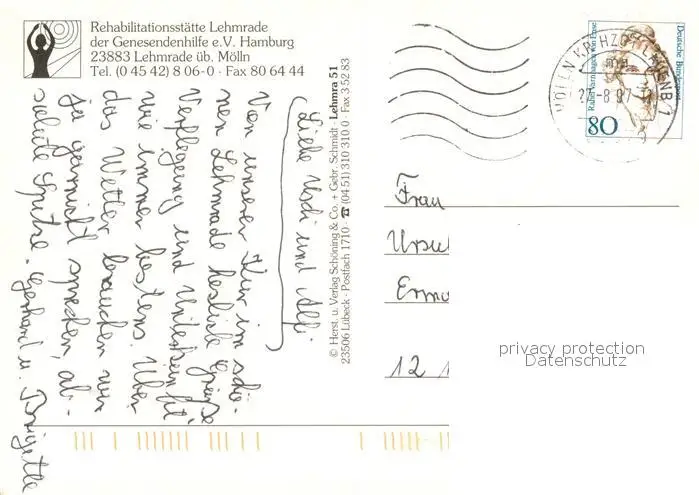 Rehabilitationsstätte Lehmrade
der Genesendenhilfe e.V. Hamburg
23883 Lehmrade üb. Mölln
Tel. (0 45 42) 8 06-0 · Fax 80 64 44
Liebe Usch und Alf!
Von unserer Kur im schö-
nen Lehmrade herzliche Grüße
Verpflegung und Unterkunft
wie immer bestens. Über
das Wetter brauchen wir
ja garnicht sprechen, al-
Spitze. Gerhard u. Brigitte
© Herst. u. Verlag Schöning & Co. + Gebr. Schmidt · Lehmra 51
23506 Lübeck · Postfach 1710 · ☎ (04 51) 310 310 0 · Fax 3 52 83
Deutsche Bundespost
Rahel Varnhagen von Ense
80
Frau
Ursul
12 1
privacy protection
Datenschutz